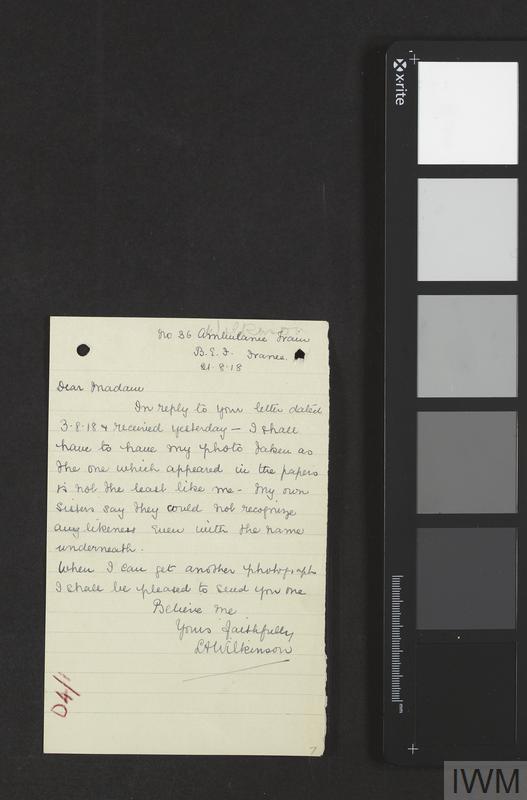 Wilkinson
No 36 Ambulance Train
B.E.F. France.
21.8.18
Dear Madam
In reply to your letter dated
3.8.18 & received yesterday – I shall
have to have my photo taken as
the one which appeared in the papers
is not the least like me – My own
sisters say they could not recognize
any likeness even with the name
underneath.
When I can get another photograph
I shall be pleased to send you one
Believe me
Yours faithfully
LAWilkinson
D4/1
7
x-rite
mm
IWM